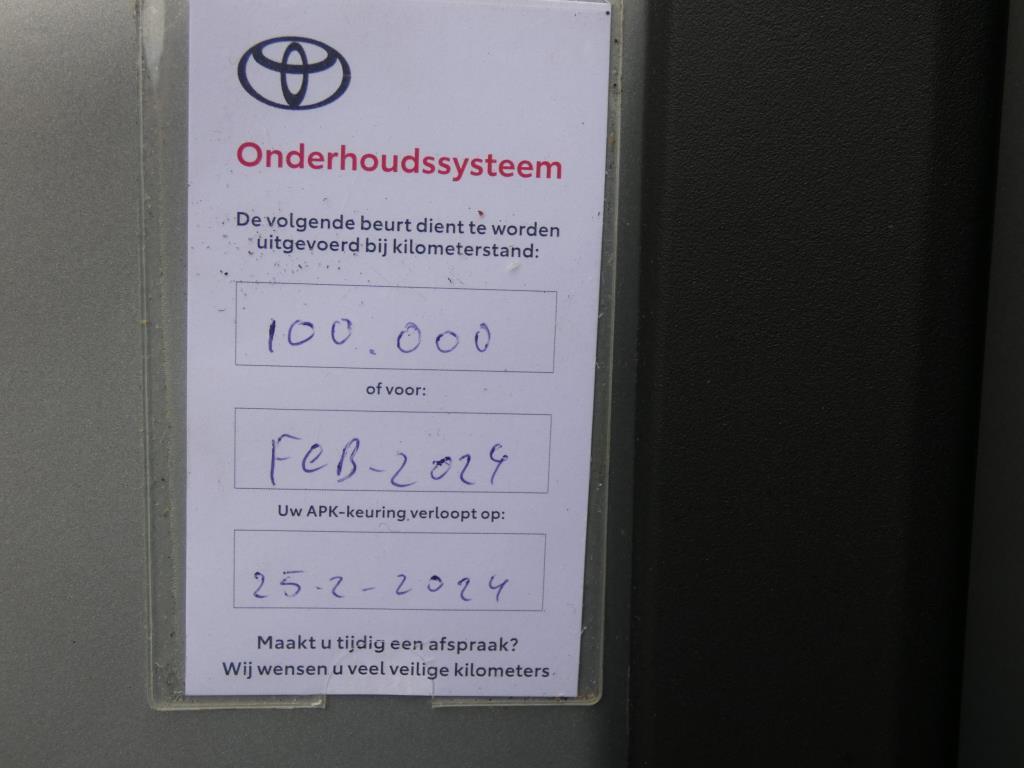 Onderhoudssysteem
De volgende beurt dient te worden
uitgevoerd bij kilometerstand:
100.000
of voor:
FEB-2024
Uw APK-keuring verloopt op:
25-2-2024
Maakt u tijdig een afspraak?
Wij wensen u veel veilige kilometers